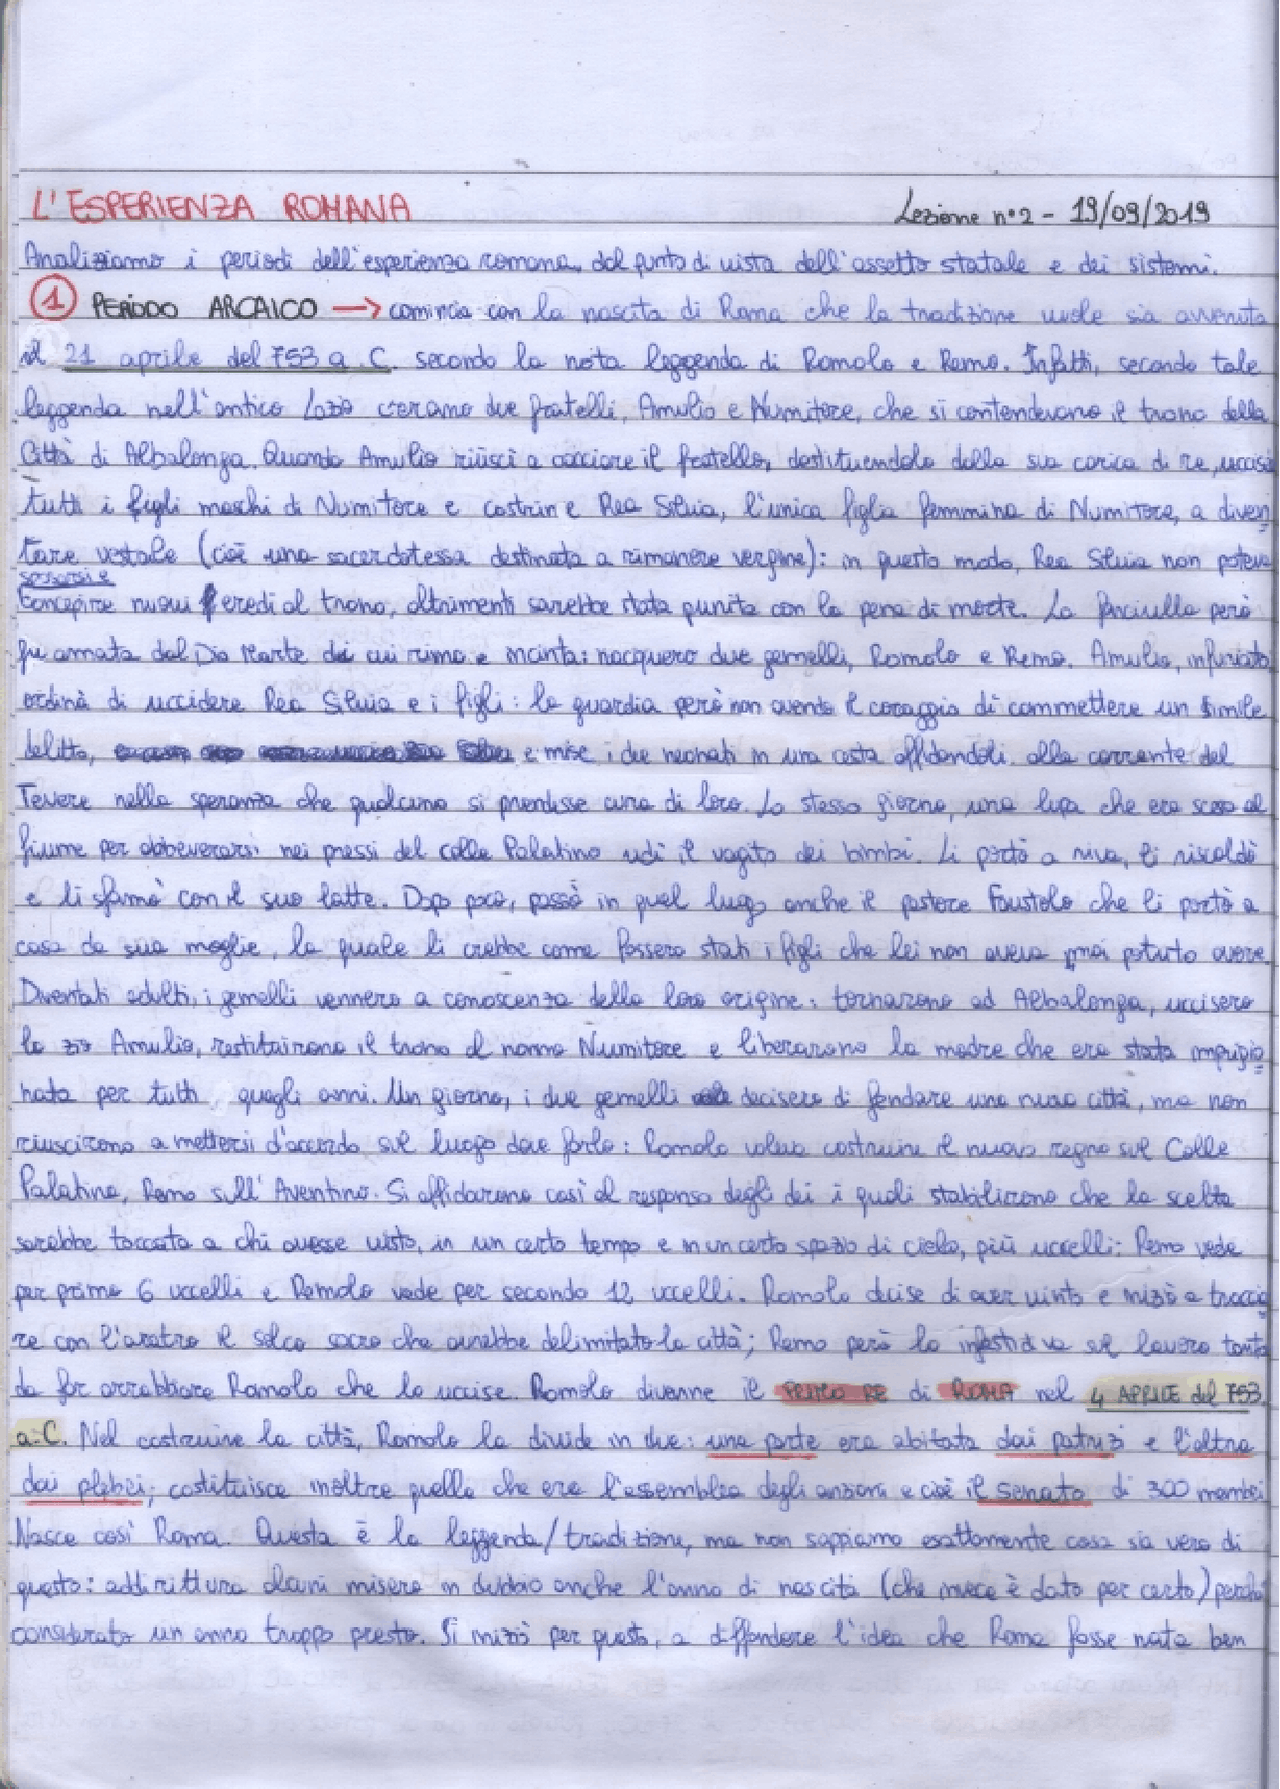 L'ESPERIENZA ROMANA Lezione n°2 - 19/09/2019
Analizziamo i periodi dell'esperienza romana, dal punto di vista dell'assetto statale e dei sistemi.
1 PERIODO ARCAICO → comincia con la nascita di Roma che la tradizione vuole sia avvenuta
il 21 aprile del 753 a.C. secondo la nota leggenda di Romolo e Remo. Infatti, secondo tale
leggenda nell'antico Lazio c'erano due fratelli, Amulio e Numitore, che si contendevano il trono della
Città di Albalonga. Quando Amulio riuscì a cacciare il fratello, destituendolo dalla sua carica di re, uccise
tutti i figli maschi di Numitore e costrin e Rea Silvia, l'unica figlia femmina di Numitore, a diven
tare vestale (cioè una sacerdotessa destinata a rimanere vergine): in questo modo, Rea Silvia non poteva
sposarsi e
concepire nuovi eredi al trono, altrimenti sarebbe stata punita con la pena di morte. La fanciulla però
fu amata dal Dio Marte di cui rima e incinta: nacquero due gemelli, Romolo e Remo. Amulio, infuriato
ordinò di uccidere Rea Silvia e i figli: la guardia però non avendo il coraggio di commettere un simile
delitto, e mise i due neonati in una cesta affidandoli alla corrente del
Tevere nella speranza che qualcuno si prendesse cura di loro. Lo stesso giorno, una lupa che era scesa al
fiume per abbeverarsi nei pressi del colle Palatino udì il vagito dei bimbi. Li portò a riva, li riscaldò
e li sfamò con il suo latte. Dopo poco, passò in quel luogo anche il pastore Faustolo che li portò a
casa da sua moglie, la quale li crebbe come fossero stati i figli che lei non aveva mai potuto avere.
Diventati adulti, i gemelli vennero a conoscenza della loro origine: tornarono ad Albalonga, uccisero
lo zio Amulio, restituirono il trono al nonno Numitore e liberarono la madre che era stata imprigio
nata per tutti quegli anni. Un giorno, i due gemelli decisero di fondare una nuova città, ma non
riuscirono a mettersi d'accordo sul luogo dove farlo: Romolo voleva costruire il nuovo regno sul Colle
Palatino, Remo sull'Aventino. Si affidarono così al responso degli dei i quali stabilirono che la scelta
sarebbe toccata a chi avesse visto, in un certo tempo e in un certo spazio di cielo, più uccelli: Remo vede
per primo 6 uccelli e Romolo vede per secondo 12 uccelli. Romolo decise di aver vinto e iniziò a traccia
re con l'aratro il solco sacro che avrebbe delimitato la città; Remo però lo infastidiva sul lavoro tanto
da far arrabbiare Romolo che lo uccise. Romolo divenne il PRIMO RE di ROMA nel 4 APRILE del 753
a.C. Nel costruire la città, Romolo la divide in due: una parte era abitata dai patrizi e l'altra
dai plebei; costituisce inoltre quello che era l'assemblea degli anziani e cioè il senato di 300 membri
Nasce così Roma. Questa è la leggenda/tradizione, ma non sappiamo esattamente cosa sia vero di
questo: addirittura alcuni misero in dubbio anche l'anno di nascita (che invece è dato per certo) perché
considerato un anno troppo presto. Si iniziò per questo, a diffondere l'idea che Roma fosse nata ben